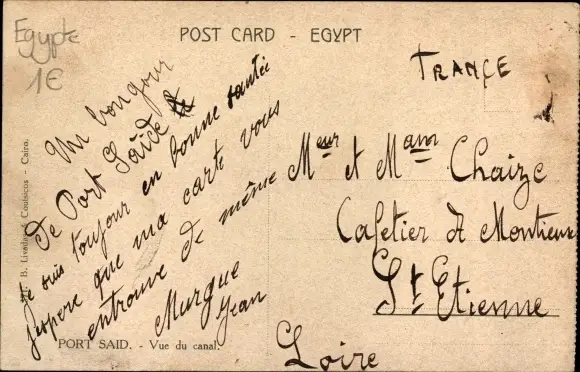 Egypte
1€
POST CARD - EGYPT
FRANCE
Un bongour
de Port Saïde
Je suis toujour en bonne santée
j'espere que ma carte vous
entrouve de même
Murgue
Jean
Meur et Mam Chaize
Cafetier A Montieux
St Etienne
Loire
B. Livadas & Coutsicos - Cairo.
PORT SAID. - Vue du canal.